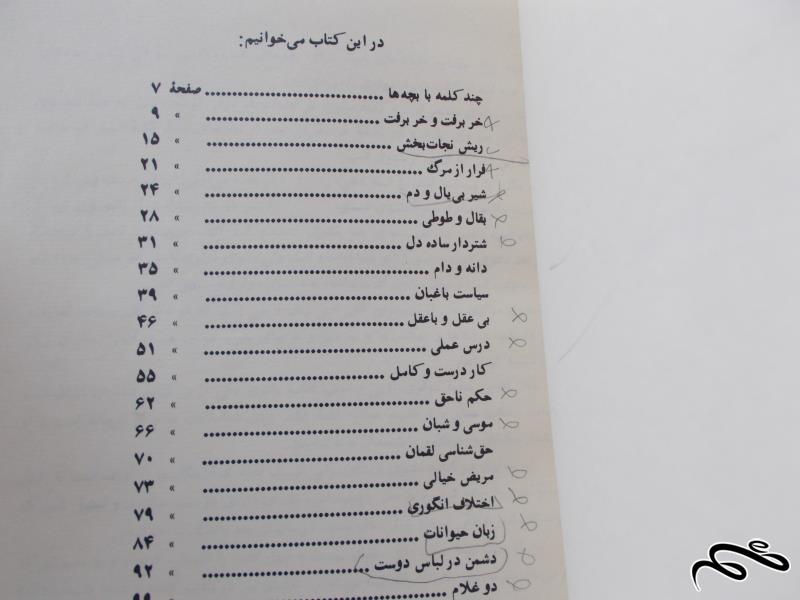 در این کتاب می‌خوانیم:
چند کلمه با بچه‌ها ........................ صفحهٔ ۷
خر برفت و خر برفت ........................ » ۹
ریش نجات‌بخش ........................ » ۱۵
فرار از مرگ ........................ » ۲۱
شیر بی‌یال و دم ........................ » ۲۴
بقال و طوطی ........................ » ۲۸
شتردار ساده دل ........................ » ۳۱
دانه و دام ........................ » ۳۵
سیاست باغبان ........................ » ۳۹
بی عقل و باعقل ........................ » ۴۶
درس عملی ........................ » ۵۱
کار درست و کامل ........................ » ۵۵
حکم ناحق ........................ » ۶۲
موسی و شبان ........................ » ۶۶
حق‌شناسی لقمان ........................ » ۷۰
مریض خیالی ........................ » ۷۳
اختلاف انگوری ........................ » ۷۹
زبان حیوانات ........................ » ۸۴
دشمن در لباس دوست ........................ » ۹۲
دو غلام ........................ » ۹۹